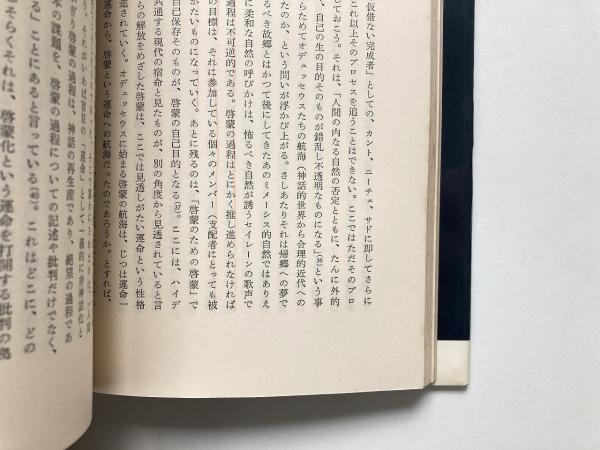 仮借ない完成者」としての、カント、ニーチェ、サドに即してさらに
これ以上そのプロセスを追うことはできない。ここではただそのプロ
しておこう。それは、「人間の内なる自然の否定とともに、たんに外的
、自己の生の目的そのものが錯乱し不透明なものになる」(36)という事
らためてオデュッセウスたちの航海(神話的世界から合理的近代への
たのか、という問いが浮かび上がる。さしあたりそれは帰郷への夢で
るべき故郷とはかつて後にしてきたあのミメーシス的自然ではありえ
に柔和な自然の呼びかけは、怖るべき自然が誘うセイレーンの歌声で
過程は不可逆的である。啓蒙の過程はとにかく推し進められなければ
の目標は、それに参加している個々のメンバー(支配者にとっても被
がたいものになっていく。あとに残るのは、「啓蒙のための啓蒙」で
自己保存そのものが、啓蒙の自己目的となる(37)。ここには、ハイデ
共通する現代の宿命と見たものが、別の角度から見透されていると言
らの解放をめざした啓蒙は、ここでは見透しがたい運命という性格
進されていく。オデュッセウスに始まる啓蒙の航海は、じつは運命一
運命から、啓蒙という運命への航海だったのであろうか。とすれば、
「運命」として一義的に非神話化と
ぎり啓蒙の過程は、神話の再生産であり、絶望の過程であ
本の課題を、啓蒙の過程についての記述や批判だけでなく、
る」ことにあると言っている(40)。これはどこに、どの
そらくそれは、啓蒙化という運命を打開する批判の拠